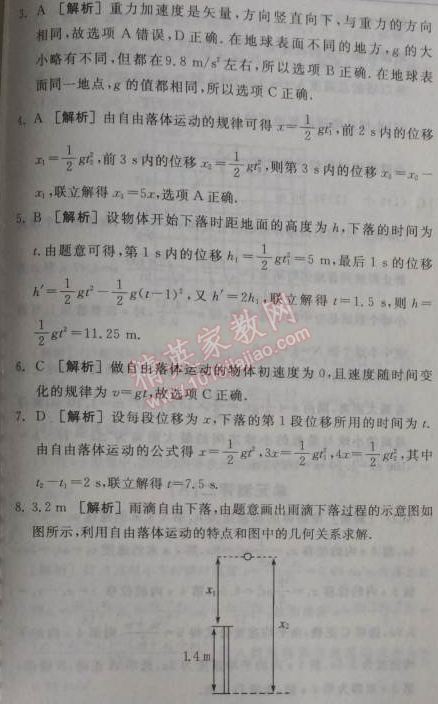 3. A [解析] 重力加速度是矢量,方向竖直向下,与重力的方向
相同,故选项 A 错误,D 正确. 在地球表面不同的地方,g 的大
小略有不同,但都在 9.8 m/s² 左右,所以选项 B 正确. 在地球表
面同一地点,g 的值都相同,所以选项 C 正确.
4. A [解析] 由自由落体运动的规律可得 x=1/2 gt₁²,前 2 s 内的位移
x₁=1/2 gt₂²,前 3 s 内的位移 x₂=1/2 gt₃²,则第 3 s 内的位移 x₃=x₂−
x₁,联立解得 x₃=5x,选项 A 正确.
5. B [解析] 设物体开始下落时距地面的高度为 h,下落的时间为
t. 由题意可得,第 1 s 内的位移 h₁=1/2 gt₁²=5 m,最后 1 s 的位移
h′=1/2 gt²−1/2 g(t−1)²,又 h′=2h₁,联立解得 t=1.5 s,则 h=
1/2 gt²=11.25 m.
6. C [解析] 做自由落体运动的物体初速度为 0,且速度随时间变
化的规律为 v=gt,故选项 C 正确.
7. D [解析] 设每段位移为 x,下落的第 1 段位移所用的时间为 t.
由自由落体运动的公式得 x=1/2 gt²,3x=1/2 gt₁²,4x=1/2 gt₂²,其中
t₂−t₁=2 s,联立解得 t=7.5 s.
8. 3.2 m [解析] 雨滴自由下落,由题意画出雨滴下落过程的示意图如
图所示,利用自由落体运动的特点和图中的几何关系求解.
x₁
x₂
1.4 m
精英家教网